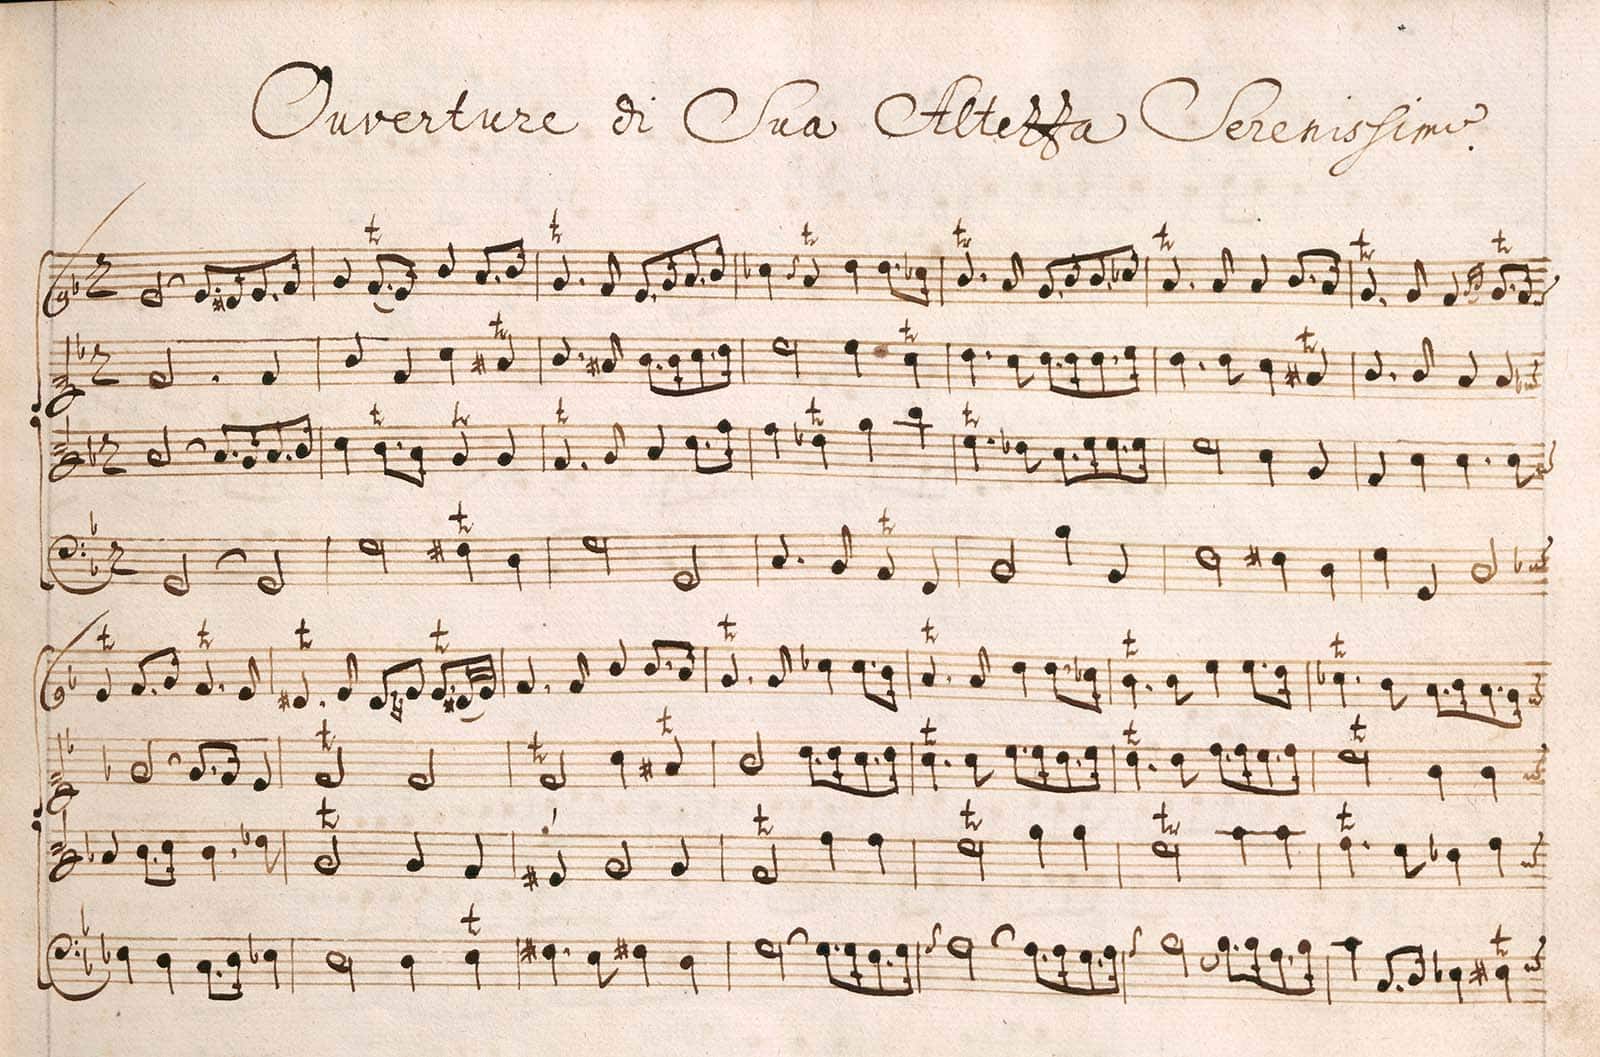 Ouverture di Sua Altezza Serenissima.